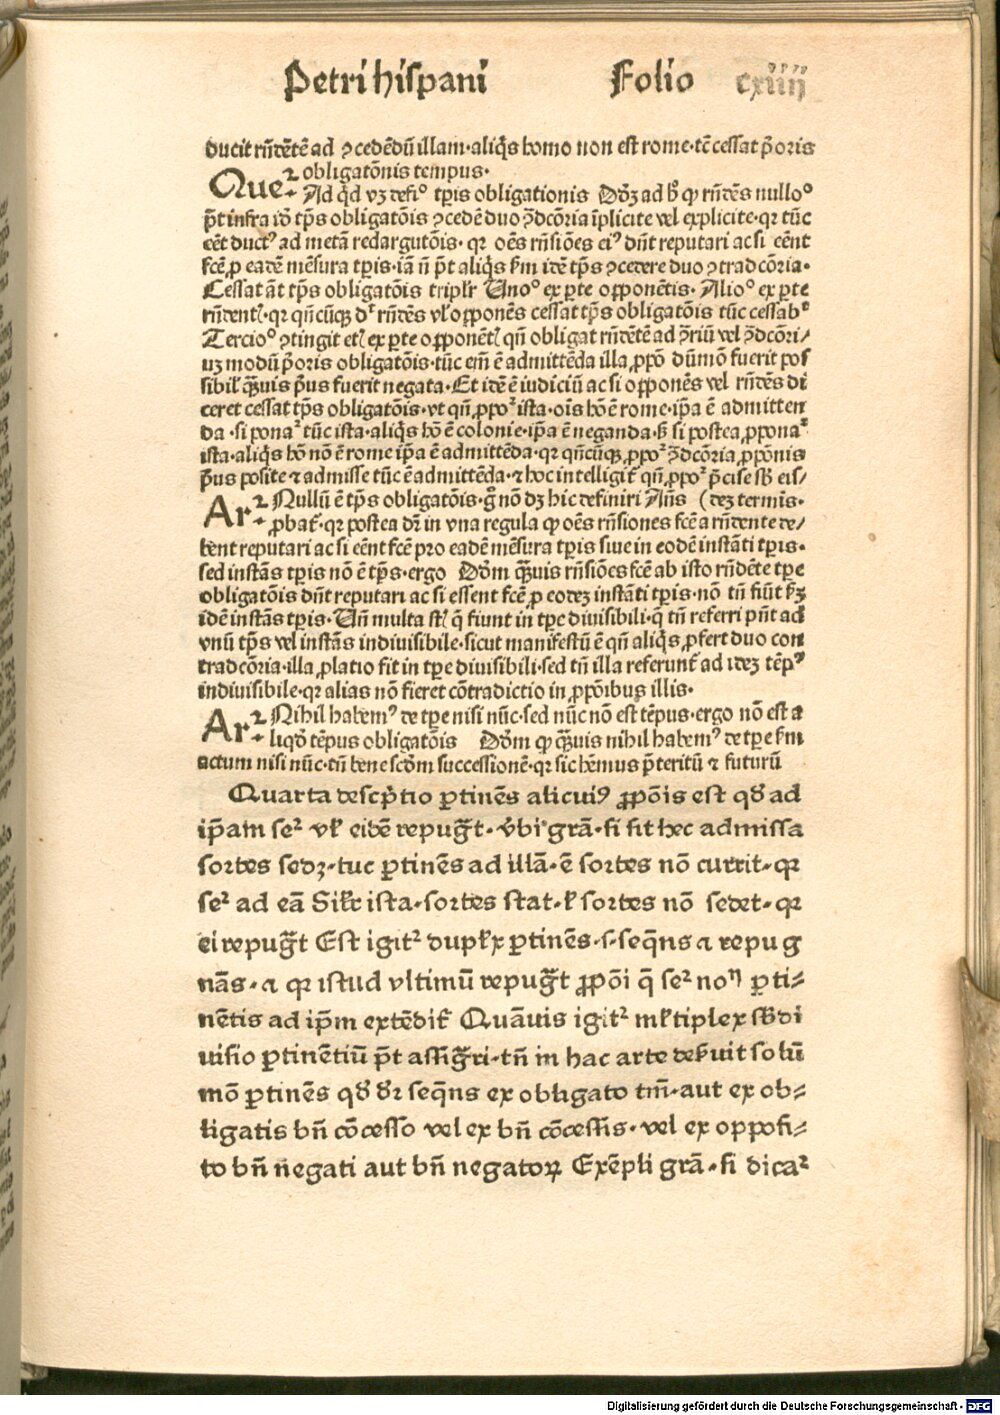 Petri hiſpani Folio cxiiij
ducit rn̄dētē ad ꝯcedēdū illam·aliq̄s homo non eſt rome·tc̄ ceſſat p̄oris
obligatōnis tempus·
Que⁊ Ad qd vꝫ defiᵒ tꝑis obligationis Dōꝫ ad hͦ ꝙ rn̄dēs nulloᵒ
p̄t infra idē tp̄s obligatōis ꝯcedē duo ꝯ̄dcōria īplicite vel explicite·qꝛ tūc
eēt ductꝰ ad metā redargutōis·qꝛ oēs rn̄ſiōes eiꝰ dn̄t reputari ac ſi eēnt
fcē ꝓ eadē mēſura tꝑis·iā n̄ p̄t aliq̄s ſm idē tp̄s ꝯcedere duo ꝯtradcōria·
Ceſſat āt tp̄s obligatōis tripłr Unoᵒ ex ꝑte opponētis·Alioᵒ ex ꝑte
rn̄dentꝭ·qꝛ qn̄cūqꝫ dꝛ rn̄dēs vł opponēs ceſſat tp̄s obligatōis tūc ceſſabᵗ
Tercioᵒ ꝯtingit etꝭ ex ꝑte opponētꝭ qn̄ obligat rn̄dētē ad ꝯ̄riū vel ꝯ̄dcōri/
uꝫ modū p̄oris obligatōis·tūc em̄ ē admittēda illa ꝓpō dūmō fuerit poſ
ſibił quāuis p̄us fuerit negata·Et idē ē iudiciū ac ſi opponēs vel rn̄dēs di
ceret ceſſat tp̄s obligatōis·vt qn̄ ꝓpoᵗ iſta·oīs hō ē rome·ip̄a ē admitten
da·ſi ponaᵗ tūc iſta·aliq̄s hō ē colonie·ip̄a ē neganda·ſꝫ ſi poſtea ꝓponaᵗ
iſta·aliq̄s hō nō ē rome ip̄a ē admittēda·qꝛ qn̄cūqꝫ ꝓpoᵗ ꝯ̄dcōria ꝓpōnis
p̄us poſite ⁊ admiſſe tūc ē admittēda·⁊ hoc intelligit̄ qn̄ ꝓpoᵗ p̄ciſe ſb̄ eiſ/
Ar⁊ Nullū ē tp̄s obligatōis·gͦ nō dꝫ hic definiri Añs (deꝫ termis·
ꝓbat̄·qꝛ poſtea dꝛ in vna regula ꝙ oēs rn̄ſiones fcē a rn̄dente de/
bent reputari ac ſi eēnt fcē pro eadē mēſura tꝑis ſiue in eodē inſtāti tꝑis·
ſed inſtās tꝑis nō ē tp̄s·ergo Dōm quāuis rn̄ſiōes fcē ab iſto rn̄dēte tꝑe
obligatōis dn̄t reputari ac ſi eſſent fcē ꝓ eodeꝫ inſtāti tꝑis·nō tn̄ fiūt ſꝫ
idē inſtās tꝑis·Un̄ multa ſꝭ q̄ fiunt in tꝑe diuiſibili·q̄ tn̄ referri pn̄t ad
vnū tp̄s vel inſtās indiuiſibile·ſicut manifeſtū ē qn̄ aliq̄s ꝓfert duo con
tradcōria·illa ꝓlatio fit in tꝑe diuiſibili·ſed tn̄ illa referunt̄ ad ideꝫ tēpꝰ
indiuiſibile·qꝛ alias nō fieret cōtradictio in ꝓpōibus illis·
Ar⁊ Nihil habemꝰ de tꝑe niſi nūc·ſed nūc nō eſt tēpus·ergo nō eſt a
liqd̄ tēpus obligatōis Dōm ꝙ quāuis nihil habemꝰ de tꝑe ſm
actum niſi nūc·tn̄ bene ſcd̄m ſucceſſionē·qꝛ ſic hēmus p̄teritū ⁊ futurū
Quarta deſcp̄tio ꝑtinēs alicuiꝰ ꝓpōis eſt qd̄ ad
ip̄am ſeᵗ vł eidē repugͣt·vbi grā·ſi ſit hec admiſſa
ſortes ſedꝫ·tuc ꝑtinēs ad illā·ē ſortes nō currit·qꝛ
ſeᵗ ad eā Sił iſta·ſortes ſtat·ł ſortes nō ſedet·qꝛ
ei repugͣt Eſt igitᵗ duplx ꝑtinēs·ſ·ſeqn̄s ⁊ repug
nās·⁊ qꝛ iſtud vltimū repugͣt ꝓpōi q̄ ſeᵗ noꝰ ꝑti⸗
nētis ad ip̄m extēdit̄ Quāuis igitᵗ mltiplex ſb̄di
uiſio ꝑtinētiū p̄t aſſigͣri·tn̄ in hac arte deſuit ſolū
mō ꝑtinēs qd̄ dꝛ ſeqn̄s ex obligato tm̄·aut ex ob⸗
ligatis bn̄ cōceſſo vel ex bn̄ cōceſſis·vel ex oppoſi⸗
to bn̄ negati aut bn̄ negatoꝝ Exēpli grā·ſi dicaᵗ
Digitalisierung gefördert durch die Deutsche Forschungsgemeinschaft - DFG